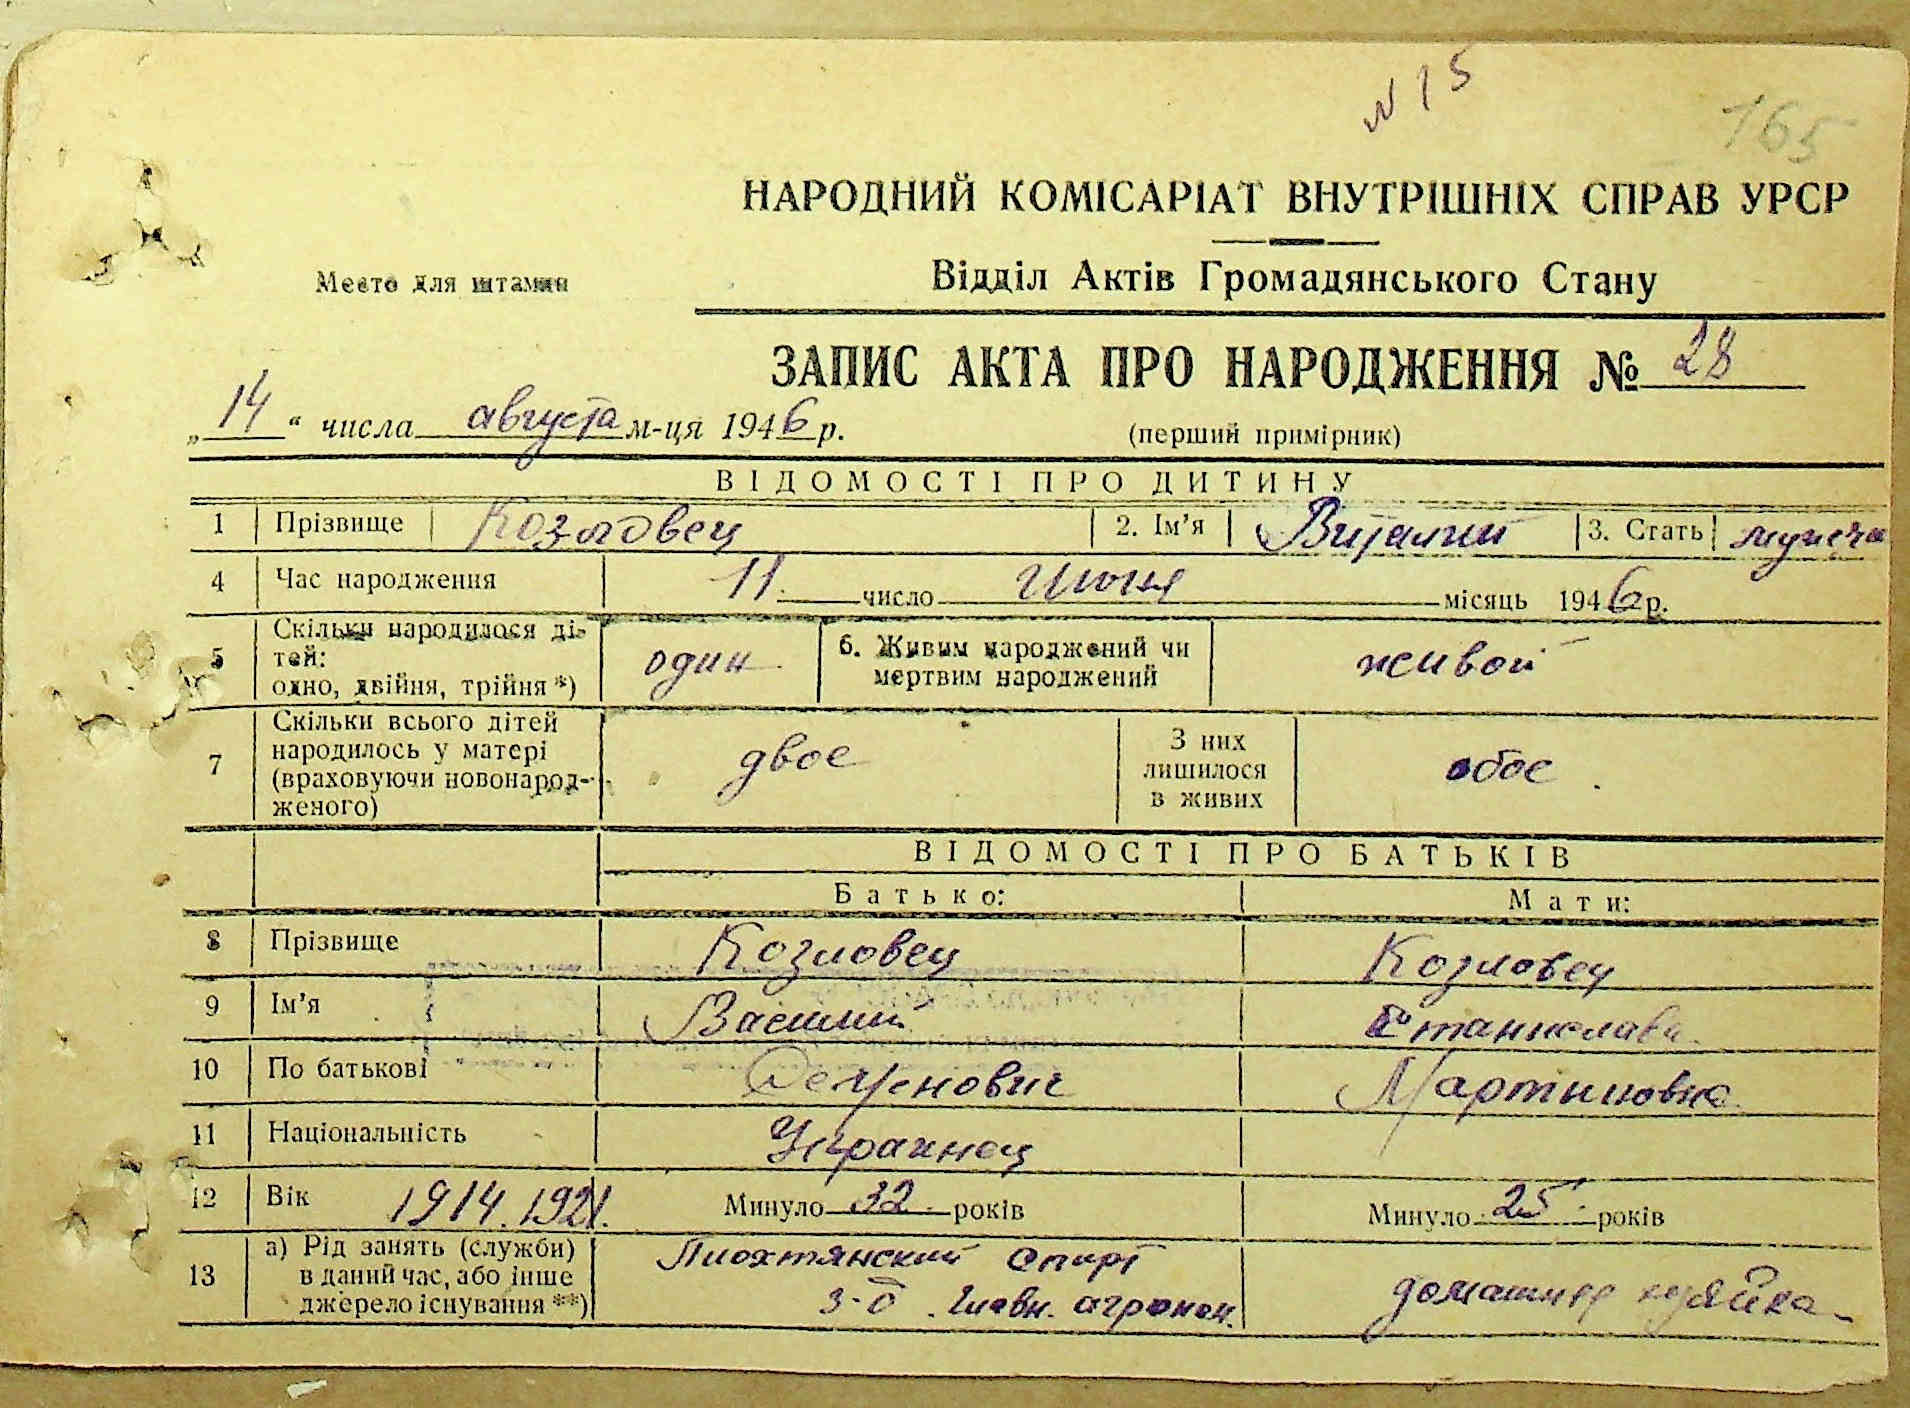 № 15
165
НАРОДНИЙ КОМІСАРІАТ ВНУТРІШНІХ СПРАВ УРСР
Место для штампа
Відділ Актів Громадянського Стану
ЗАПИС АКТА ПРО НАРОДЖЕННЯ № 28
„14“ числа августа м-ця 1946 р. (перший примірник)
ВІДОМОСТІ ПРО ДИТИНУ
1 Прізвище Козловец 2. Ім'я Виталий 3. Стать мужско
4 Час народження 11 число Июня місяць 1946 р.
5 Скільки народилося ді-
тей:
одно, двійня, трійня *) один 6. Живим народжений чи
мертвим народжений живой
7 Скільки всього дітей
народилось у матері
(враховуючи новонарод-
женого) двое З них
лишилося
в живих обое
ВІДОМОСТІ ПРО БАТЬКІВ
Батько: Мати:
8 Прізвище Козловец Козловец
9 Ім'я Василий Станислава
10 По батькові Семенович Мартиновна
11 Національність Украинец
12 Вік 1914. 1921. Минуло 32 років Минуло 25 років
13 а) Рід занять (служби)
в даний час, або інше
джерело існування **) Спирт
з-д. Главн. агроном. домашняя хозяйка